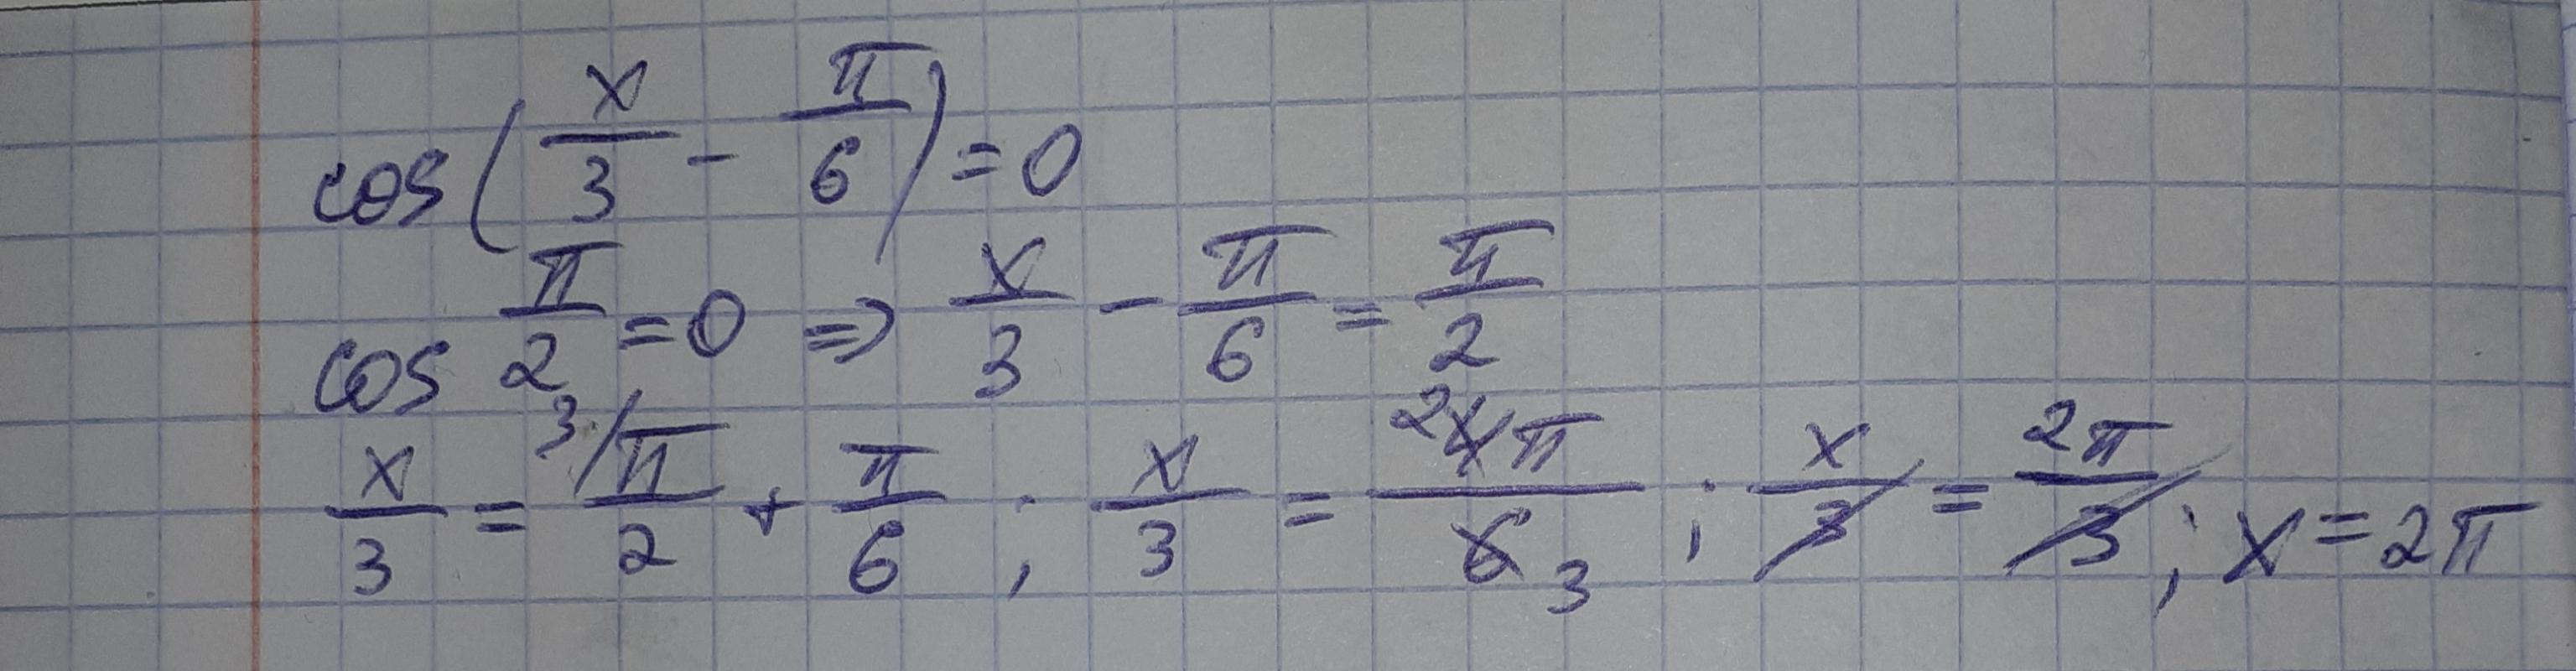 cos(x/3 - π/6) = 0
cos π/2 = 0 => x/3 - π/6 = π/2
x/3 = 3/π/2 + π/6 ; x/3 = 2 4π/6 3 ; x/3 = 2π/3 ; x = 2π